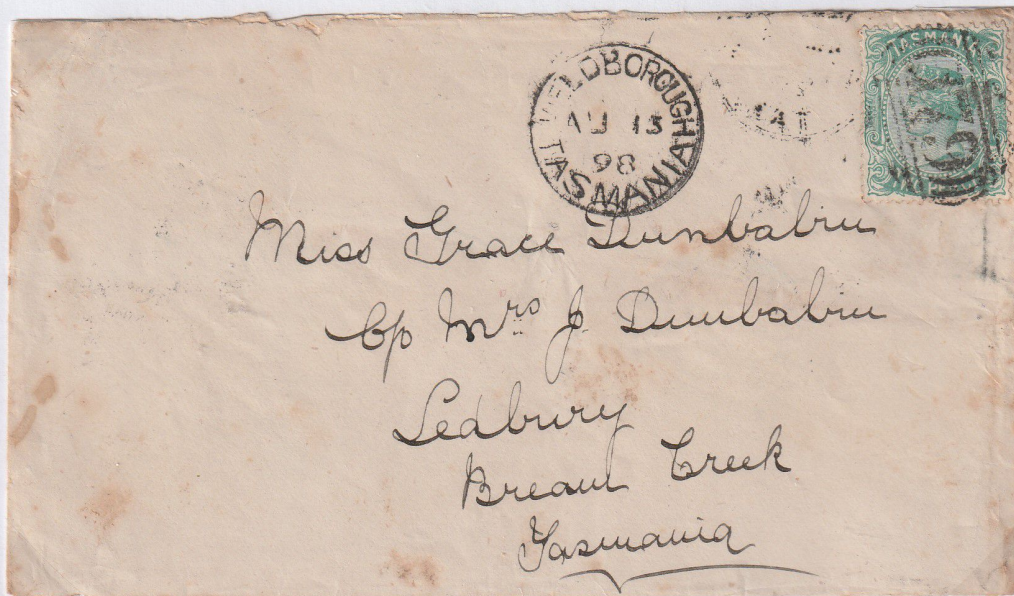 WELDBOROUGH
AU 13
98
TASMANIA
TASMANIA
Miss Grace Dunbabin
C/o Mrs J. Dunbabin
Ledbury
Bream Creek
Tasmania